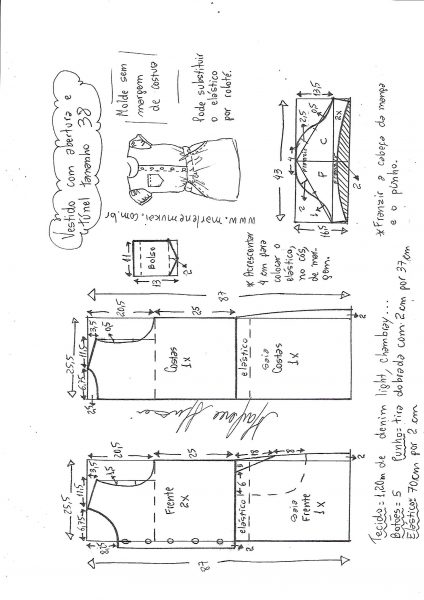 Vestido com abertura e
Túnel tamanho 38
Molde sem
margem
de costura
Pode substituir
o elástico
por rolotê.
www.marlenemukai.com.br
43
4
2
2,5
0,5
13,5
franzir
P
C
2x
1
16,5
2
*Franzir a cabeça da manga
e o punho.
11
Bolso
13
2
*Acrescentar
4 cm para
colocar o
elástico,
no cós,
de mar-
gem.
87
20,5
25
25,5
6,75
11,5
3,5
0,5
2,5
Costas
1x
elástico
Saia
Costas
1x
2
20,5
25
18
8
25,5
6,75
11,5
3,5
1,5
8,5
Frente
2x
elástico
6
3
Saia
Frente
1x
2
2
87
Tecido = 1,20m de denim light, chambray...
Botões = 5 Punho = tira dobrada com 2cm por 37cm
Elástico = 70cm por 2 cm